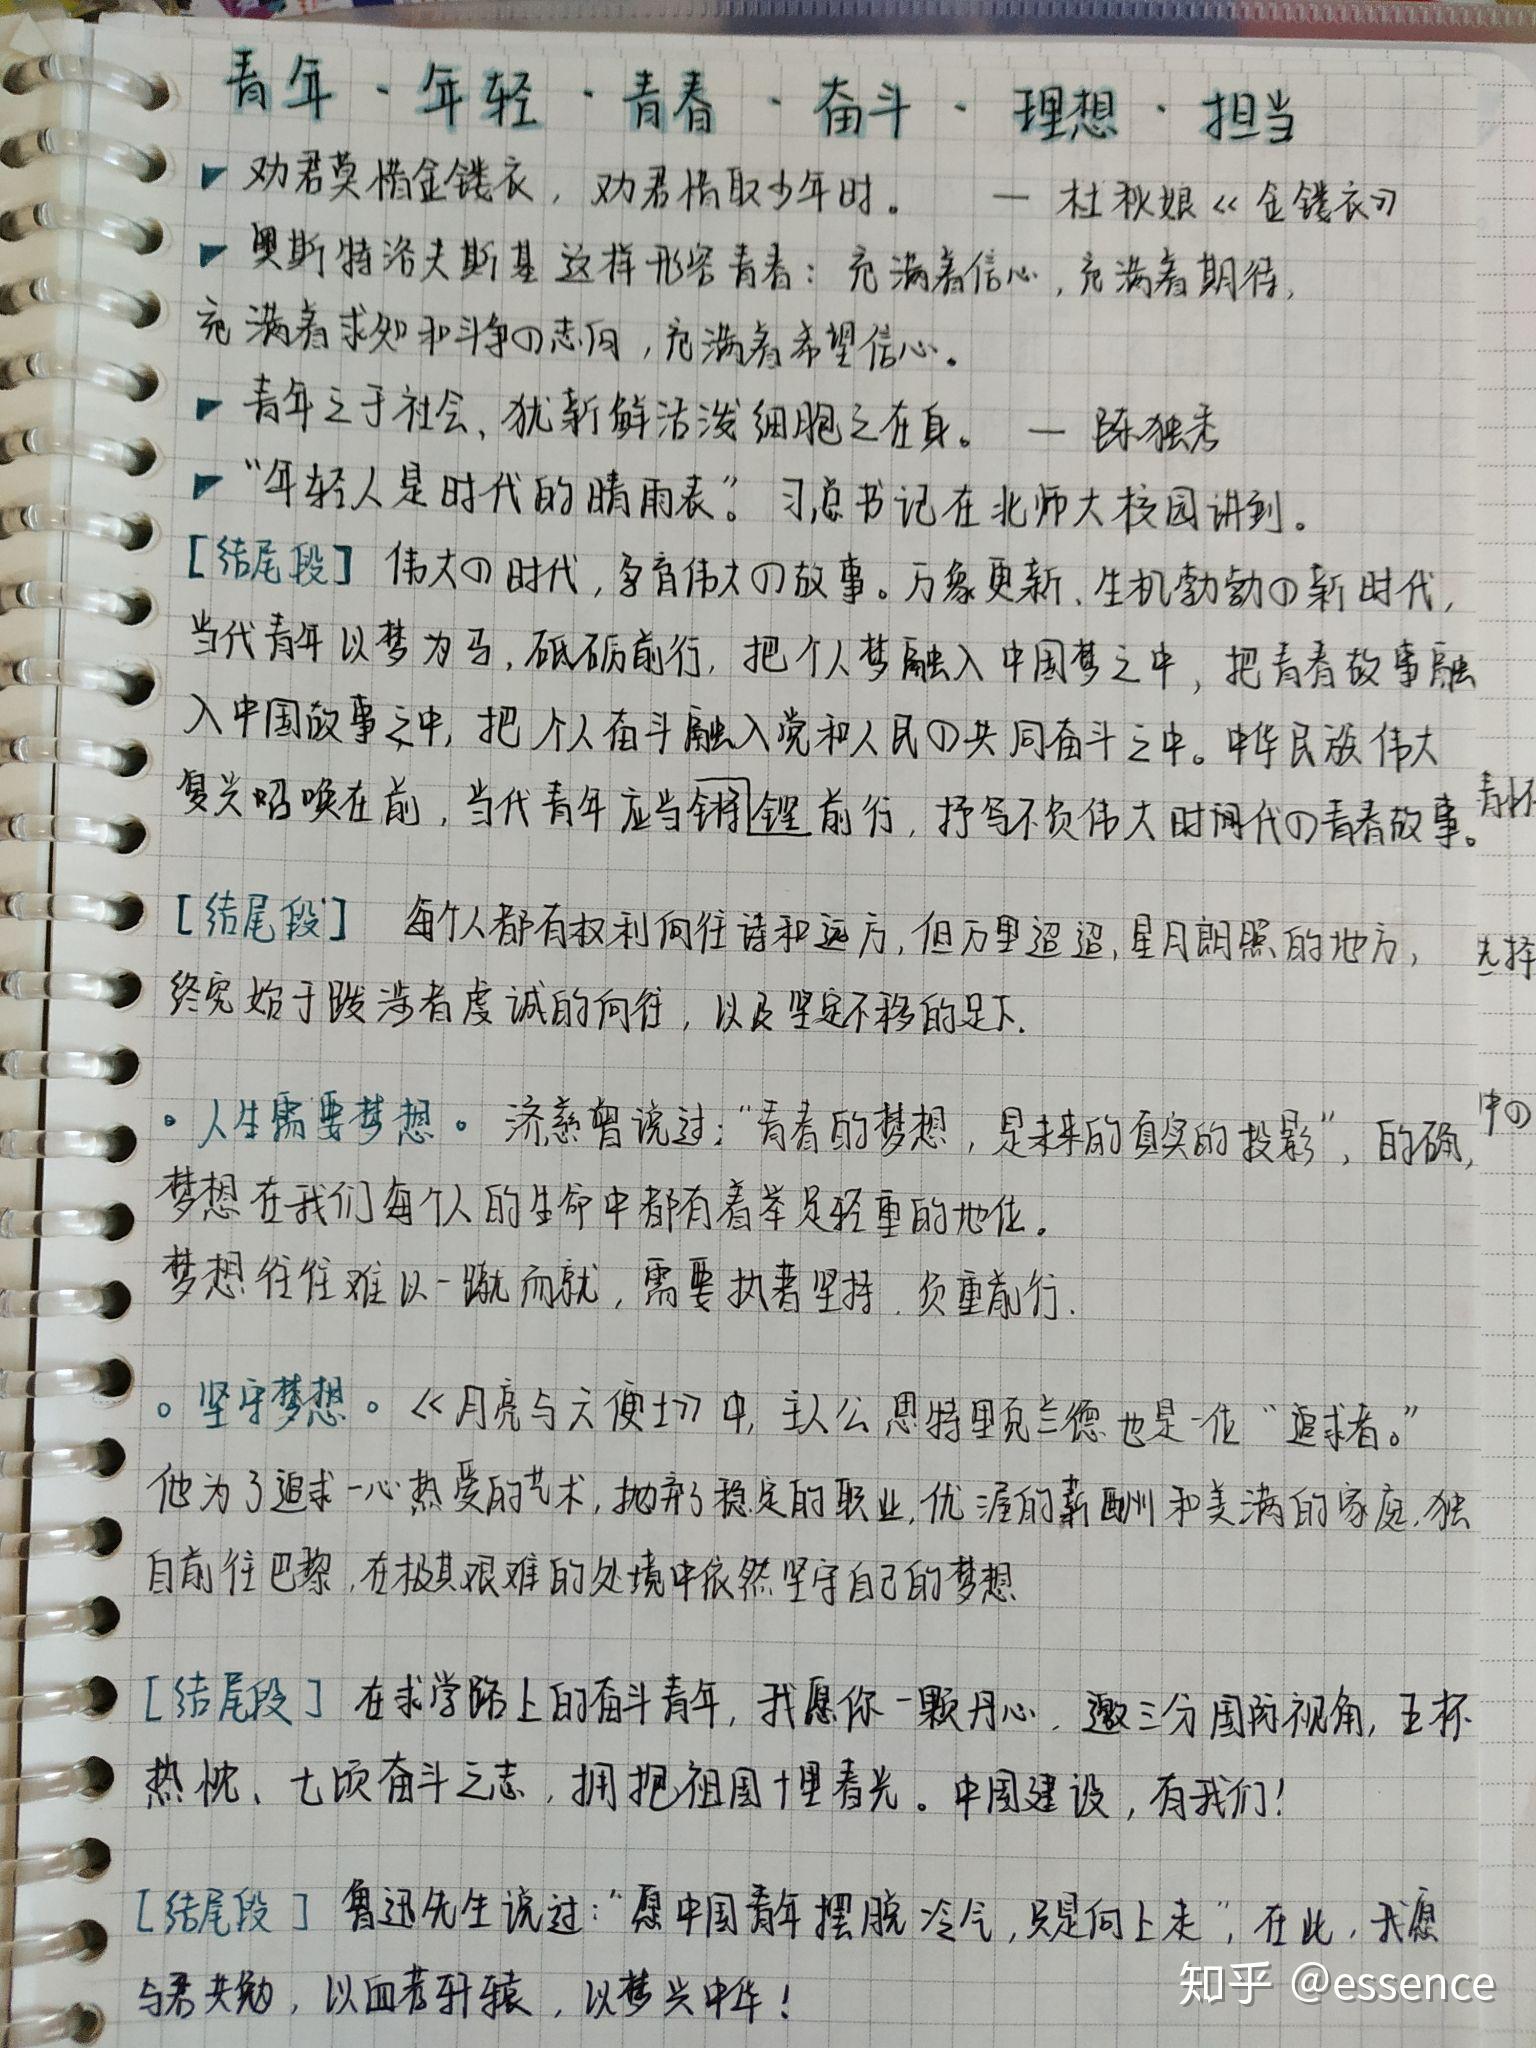 青年·年轻·青春·奋斗·理想·担当
劝君莫惜金镂衣，劝君惜取少年时。 — 杜秋娘《金镂衣》
奥斯特洛夫斯基这样形容青春：充满着信心，充满着期待，
充满着求知和斗争の志向，充满着希望信心。
青年之于社会、犹新鲜活泼细胞之在身。 — 陈独秀
“年轻人是时代的晴雨表”。习总书记在北师大校园讲到。
[结尾段] 伟大の时代，孕育伟大の故事。万象更新、生机勃勃の新时代，
当代青年以梦为马，砥砺前行，把个人梦融入中国梦之中，把青春故事融
入中国故事之中，把个人奋斗融入党和人民の共同奋斗之中。中华民族伟大
复兴呼唤在前，当代青年应当锵铿前行，抒写不负伟大时代の青春故事。
[结尾段] 每个人都有权利向往诗和远方，但万里迢迢，星月朗照的地方，
终究始于跋涉者虔诚的向往，以及坚定不移的足下.
。人生需要梦想。济慈曾说过：“青春的梦想，是未来的真实的投影”，的确，
梦想在我们每个人的生命中都有着举足轻重的地位。
梦想往往难以一蹴而就，需要执着坚持、负重前行.
。坚守梦想。《月亮与六便士》中，主人公思特里克兰德也是一位“追求者。”
他为了追求一心热爱的艺术，抛弃了稳定的职业，优渥的薪酬和美满的家庭，独
自前往巴黎，在极其艰难的处境中依然坚守自己的梦想
[结尾段] 在求学路上的奋斗青年，我愿你一颗丹心、邀三分国际视角，五杯
热忱、七顷奋斗之志，拥抱祖国十里春光。中国建设，有我们！
[结尾段] 鲁迅先生说过：“愿中国青年摆脱冷气，只是向上走”，在此，我愿
与君共勉，以血荐轩辕，以梦兴中华！
中の
知乎 @essence